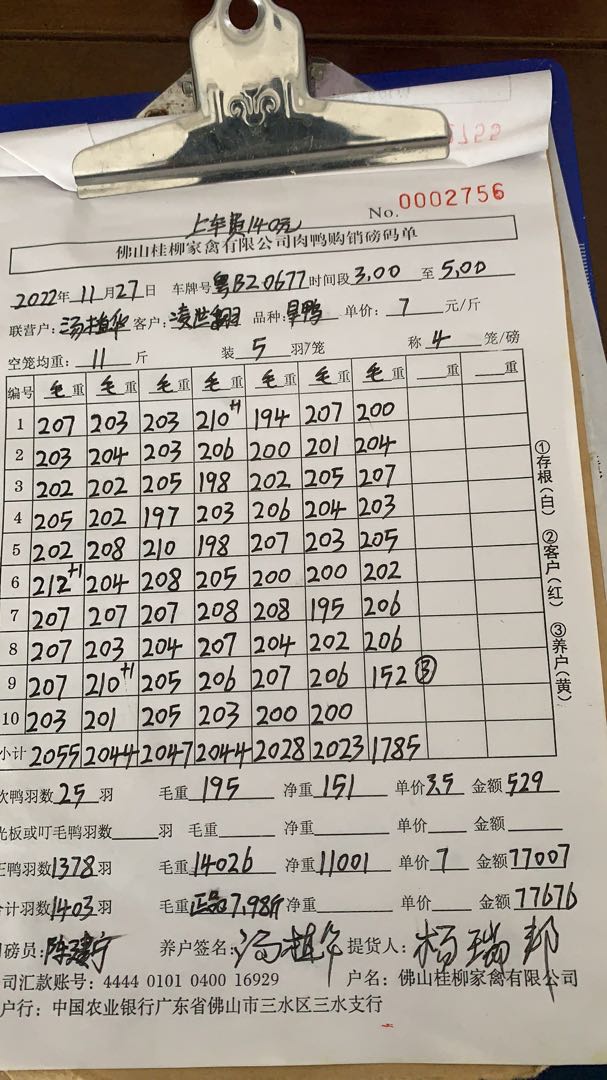 No. 0002756
上车费140元
佛山桂柳家禽有限公司肉鸭购销磅码单
2022年 11月27日 车牌号粤BZ0677时间段3,00 至5,00
联营户:汤植华 客户: 品种: 单价: 7 元/斤
空笼均重: 11 斤 装 5 羽/笼 称 4 笼/磅
编号 毛重 毛重 毛重 毛重 毛重 毛重 毛重 重 重
1 207 203 203 210+1 194 207 200
2 203 204 203 206 200 201 204
3 202 202 205 198 202 205 207
4 205 202 197 203 206 204 203
5 202 208 210 198 207 203 205
6 212+1 204 208 205 200 200 202
7 207 207 207 208 208 195 206
8 207 203 204 207 204 202 206
9 207 210+1 205 206 207 206 152 ③
10 203 201 205 203 200 200
小计 2055 2044 2047 2044 2028 2023 1785
①存根(白) ②客户(红) ③养户(黄)
次鸭羽数25羽 毛重195 净重151 单价3.5 金额529
光板或叮毛鸭羽数 羽 毛重 净重 单价 金额
正鸭羽数1378羽 毛重14026 净重11001 单价7 金额77007
合计羽数1403羽 毛重正品7.98斤 净重 单价 金额77676
司磅员: 养户签名:汤植华 提货人:杨瑞邦
公司汇款账号: 4444 0101 0400 16929 户名: 佛山桂柳家禽有限公司
开户行: 中国农业银行广东省佛山市三水区三水支行